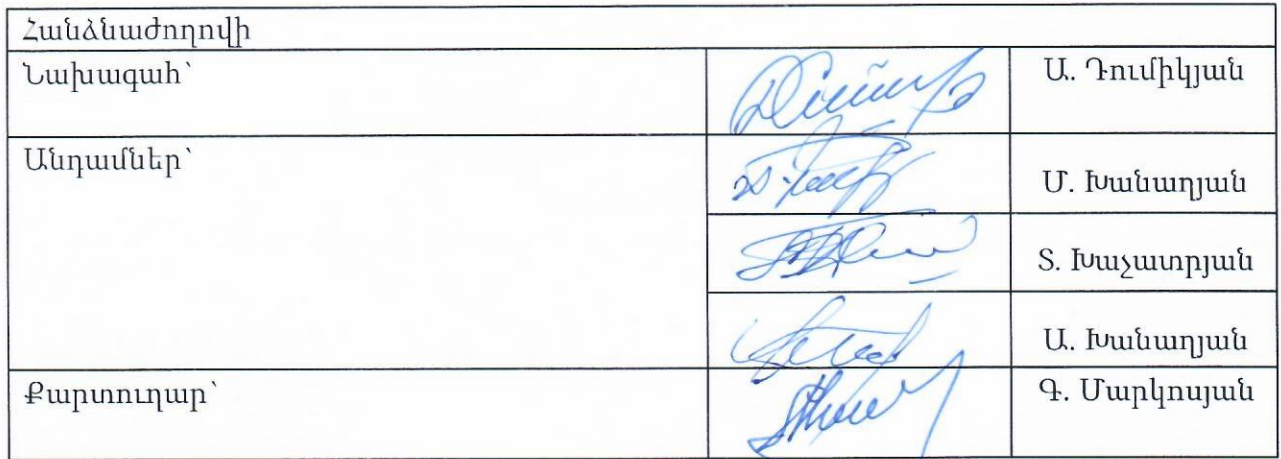 Հանձնաժողովի
Նախագահ՝ Ա. Դումիկյան
Անդամներ՝ Մ. Խանաղյան
Տ. Խաչատրյան
Ա. Խանաղյան
Քարտուղար՝ Գ. Մարկոսյան